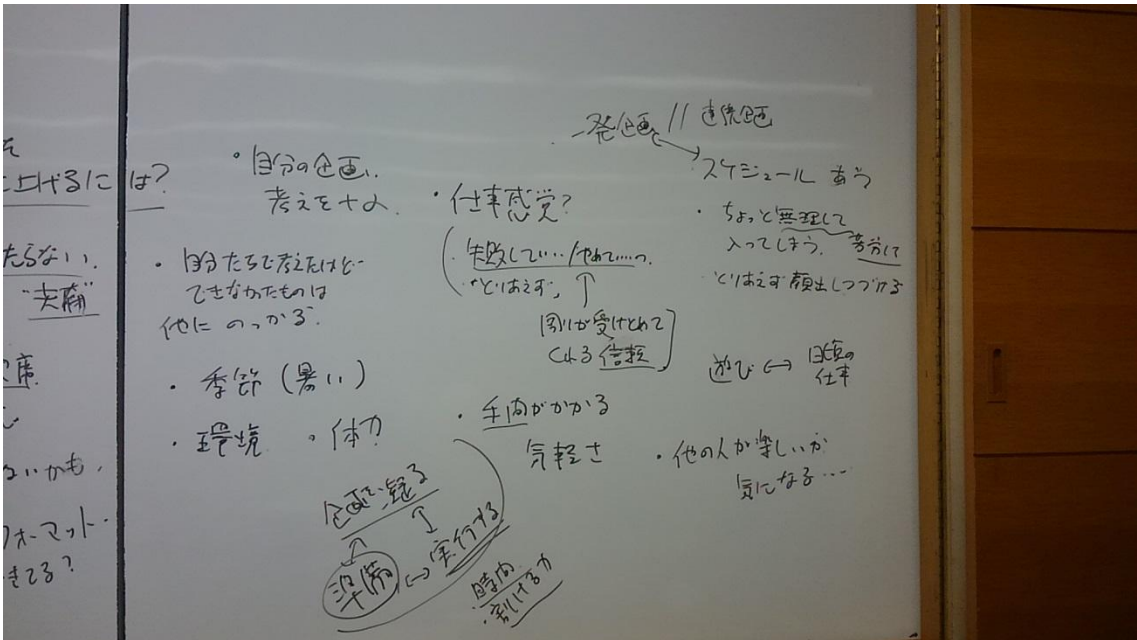 上げるには?
たらない。
"失敗"
席
ないかも。
フォーマット‥
きてる?
・自分の企画、
考えを+α.
・自分たちで考えたけど‥
できなかったものは
他に のっかる.
・季節(暑い)
・環境 ・体力
企画を練る
準備 ↔ 実行する
・時間
・割ける力
・仕事感覚?
失敗して‥‥/やめて‥‥の.
"とりあえず"
周りが受けとめて
くれる信頼
・手間がかかる
気軽さ
一発企画 // 連続企画
スケジュール あう
・ちょっと無理して
入ってしまう.
とりあえず顔出しつづける
遊び ↔ 日頃の
仕事
・他の人が楽しいか
気になる‥‥